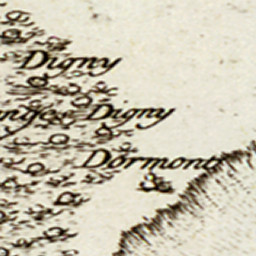 Digny
Digny
Dormont